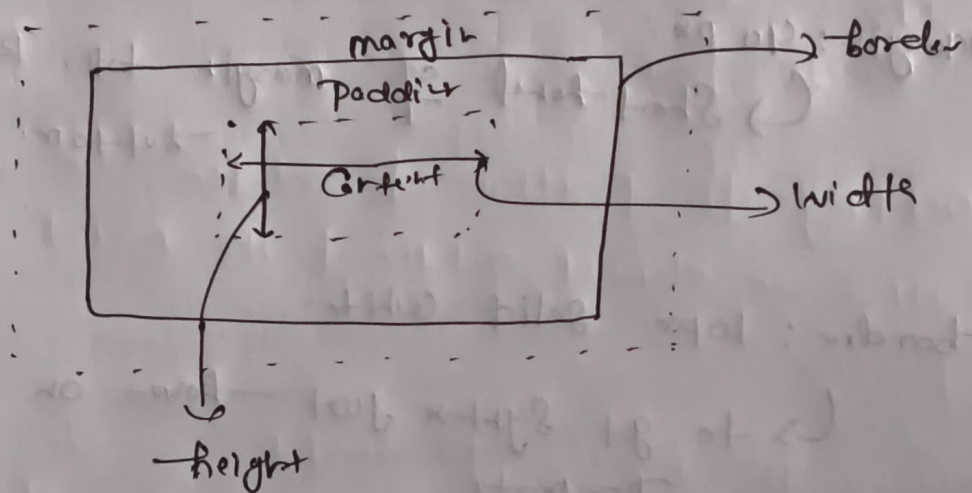 margin
border
Padding
Content
width
height